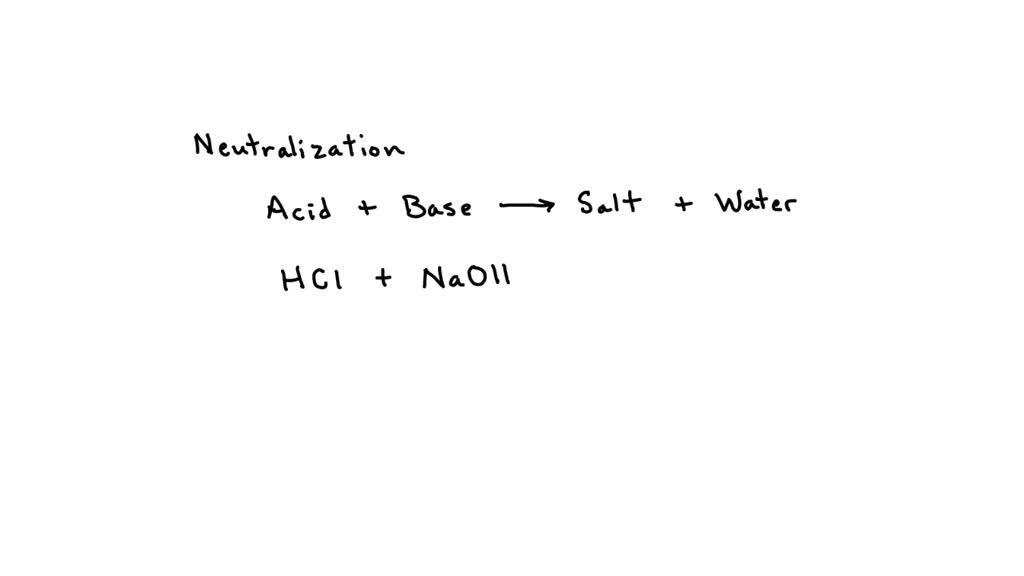 Neutralization
Acid + Base → Salt + Water
HCl + NaOll